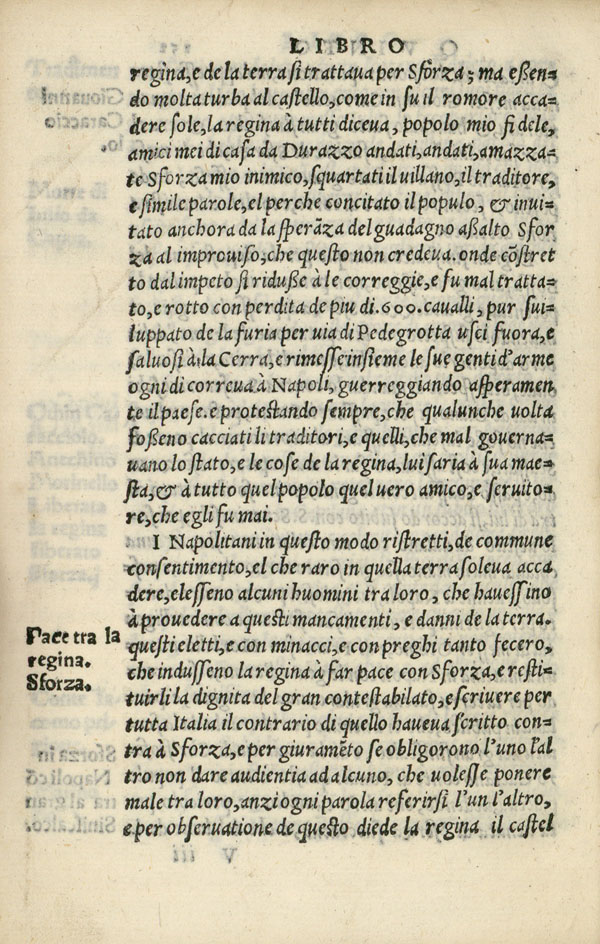 LIBRO
regina, e de la terra si trattaua per Sforza; ma eßen-
do molta turba al castello, come in su il romore acca-
dere sole, la regina à tutti diceua, popolo mio fidele,
amici mei di casa da Durazzo andati, andati, amazza-
te Sforza mio inimico, squartati il uillano, il traditore,
e simile parole, el perche concitato il populo, & inui-
tato anchora da la sperāza del guadagno aßalto Sfor
za al improuiso, che questo non credeua. onde cōstret
to dal impeto si riduße à le correggie, e fu mal tratta-
to, e rotto con perdita de piu di .600. caualli, pur sui-
luppato de la furia per uia di Pedegrotta usci fuora, e
saluosi à la Cerra, e rimesse insieme le sue genti d'arme
ogni di correua à Napoli, guerreggiando asperamen
te il paese. e protestando sempre, che qualunche uolta
foßeno cacciati li traditori, e quelli, che mal gouerna-
uano lo stato, e le cose de la regina, lui saria à sua mae-
stà, & à tutto quel popolo quel uero amico, e seruito-
re, che egli fu mai.
I Napolitani in questo modo ristretti, de commune
consentimento, el che raro in quella terra soleua acca
dere, elesseno alcuni huomini tra loro, che hauessino
à prouedere a questi mancamenti, e danni de la terra.
Pace tra la
regina.
Sforza.
questi eletti, e con minacci, e con preghi tanto fecero,
che indusseno la regina à far pace con Sforza, e resti-
tuirli la dignita del gran contestabilato, e scriuere per
tutta Italia il contrario di quello haueua scritto con-
tra à Sforza, e per giuramēto se obligorono l'uno l'al
tro non dare audientia ad alcuno, che uolesse ponere
male tra loro, anzi ogni parola referirsi l'un l'altro,
e per obseruatione de questo diede la regina il castel